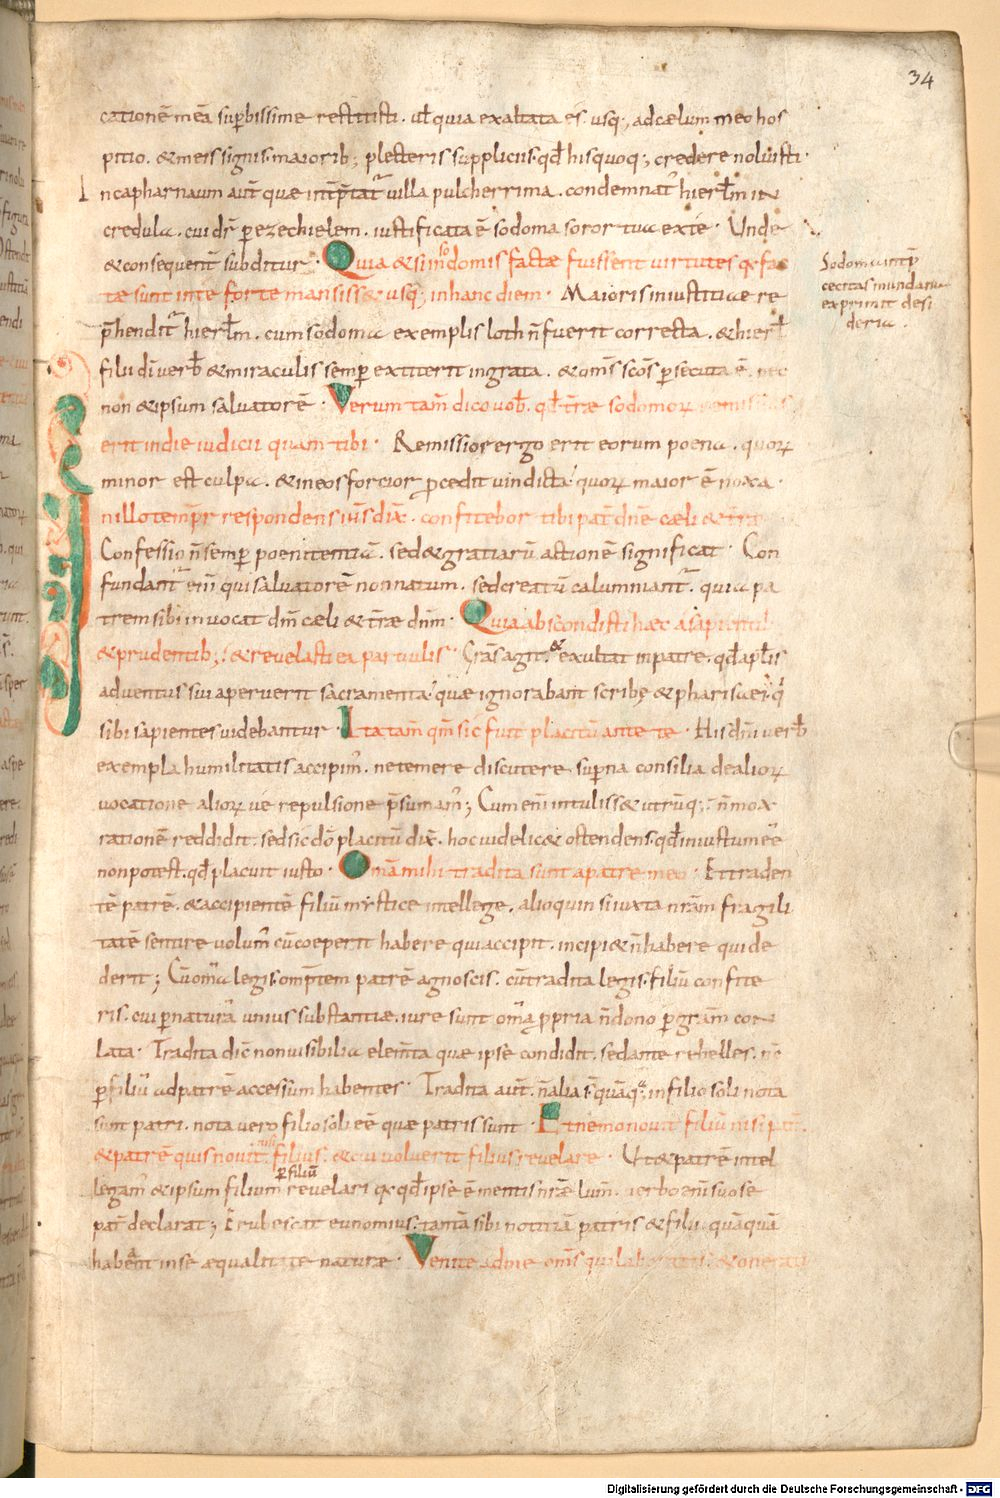 34
cationē meā sup̄bissime restitisti . ul̄ quia exaltata es̄ usq; ad cælum meo hos
pitio . & meis signis maiorib; plecteris suppliciis . qđ his quoq; credere noluisti .
In capharnaum aut̄ quæ int̄p̄tat᷑ uilla pulcherrima . condemnat᷑ hierl̄m in
credula . cui dr̄ ꝑ ezechielem . iustificata ē sodoma soror tua ex te . Unde
& consequent̄ subditur . Quia & si in sodomis factæ fuissent uirtutes quæ fac
tæ sunt in te forte mansiss& usq; in hanc diem . Maioris iniustitiae re
p̄hendit᷑ hierl̄m . cum sodoma exemplis loth n̄ fuerit correcta . & hierl̄
filii dī uerb̄ & miraculis semꝑ extiterit ingrata . & om̄s sc̄os ꝑsecuta ē . nec
non & ipsum saluatorē . Verum tam̄ dico uob̄ . qđ t̄ræ sodomoꝝ remissius
erit in die iudicii quam tibi . Remissior ergo erit eorum poena . quoꝝ
minor est culpa . & in eos forcior ꝓcedit uindicta quoꝝ maior ē noxa .
In illo temp̄r respondens ih̄s dix̄ . confitebor tibi pat̄ dn̄e cæli & t̄ræ
Confessio n̄ semꝑ poenitentiā . sed & gratiarū actionē significat . Con
fundant᷑ em̄ qui saluatorē non natum . sed creatū calumniant᷑ . quia pa
trem sibi inuocat dn̄m cæli & t̄ræ dn̄m . Quia abscondisti hæc a sapientib
& prudentib; & reuelasti ea paruulis . Gr̄as agit . & exultat in patre . qđ apl̄is
aduentus sui aperuerit sacramenta quæ ignorabant scribę & pharisæi . q
sibi sapientes uidebantur . Ita tam̄ qm̄ sic fuit placitū ante te . His dn̄i uerb̄
exempla humilitatis accipim᷒ . ne temere discutere suꝑna consilia de alioꝝ
uocatione alioꝝ ue repulsione p̄sumam᷒ ; Cum em̄ intuliss& utrūq; n̄ mox
rationē reddidit . sed sic dō placitū dix̄ . hoc uidelic& ostendens . qđ iniustum eē
non potest . qđ placuit iusto . Om̄a mihi tradita sunt a patre meo . Et traden
tē patrē . & accipientē filiū mystice intellege . alioquin si iuxta nr̄am fragili
tatē sentire uolum᷒ cū coeperit habere qui accipit . incipi& n̄ habere qui de
derit ; Cū om̄ia legis omp̄tem patrē agnoscis . cū tradita legis . filiū confite
ris . cui ꝑ naturā unius substantiæ . iure sunt om̄a ꝓpria n̄ dono ꝑ gr̄am con
lata . Tradita dic̄ non uisibilia elem̄ta quæ ipse condidit . sed ante rebelles . nc̄
ꝑ filiū ad patrē accessum habentes . Tradita aut̄ n̄ alia s̄ quāq; in filio soli nota
sunt patri . nota uero filio soli eē quæ patris sunt . Et nemo nouit filiū nisi pat̄
& patrē quis nouit nisi filius . & cui uoluerit filius reuelare . Ut & patrē intel
legam᷒ & ipsum filium ꝑ filiū reuelari quæ qđ ipse ē mentis nr̄æ lum̄ . uerbo em̄ suo se
pat̄ declarat ; Erubescat eunomius . tantā sibi notitiā patris & filii quāquā
habent in se æqualitate naturæ . Venite ad me om̄s qui laboratis . & onerati
Sodoma int̄p̄
cecitas mundana
exprimit desi
deria .
Digitalisierung gefördert durch die Deutsche Forschungsgemeinschaft - DFG